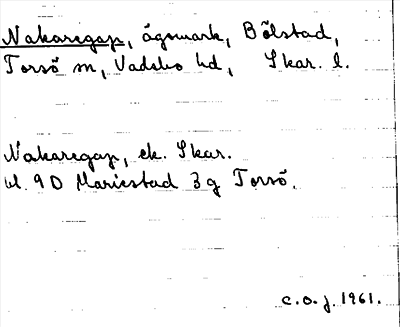 Nakaregap, ägomark, Bölstad,
Torsö sn, Vadsbo hd, Skar. l.
Nakaregap, ek. Skar.
bl. 9 D Mariestad 3 g Torsö.
c.o.j. 1961.